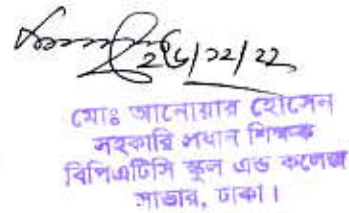 ২৬/১২/২২
মোঃ আনোয়ার হোসেন
সহকারি প্রধান শিক্ষক
বিপিএটিসি স্কুল এন্ড কলেজ
সাভার, ঢাকা।